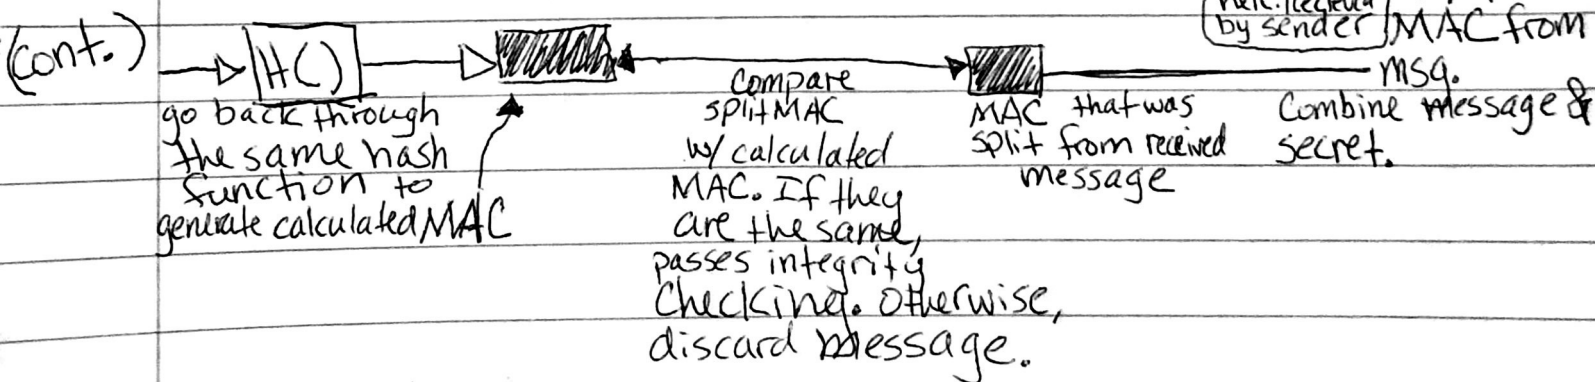 (cont.)
H()
go back through
the same hash
function to
generate calculated MAC
compare
split MAC
w/ calculated
MAC. If they
are the same,
passes integrity
checking. Otherwise,
discard message.
MAC that was
split from received
message
by sender
MAC from
msg.
Combine message &
secret.